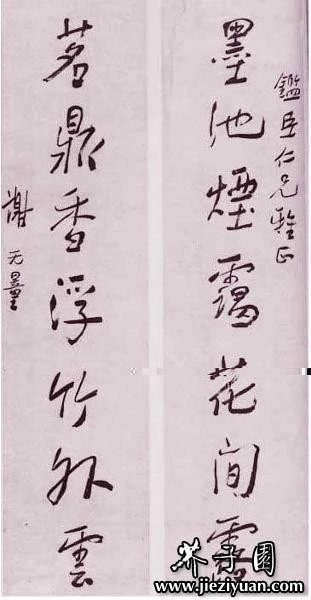 鑑臣仁兄雅正
墨池煙靄花間露
茗鼎香浮竹外雲
謝无量
芥子園
www.jieziyuan.com